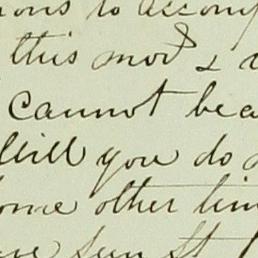 ions to accomp
this mod &
cannot bea
Will you do
some other tim